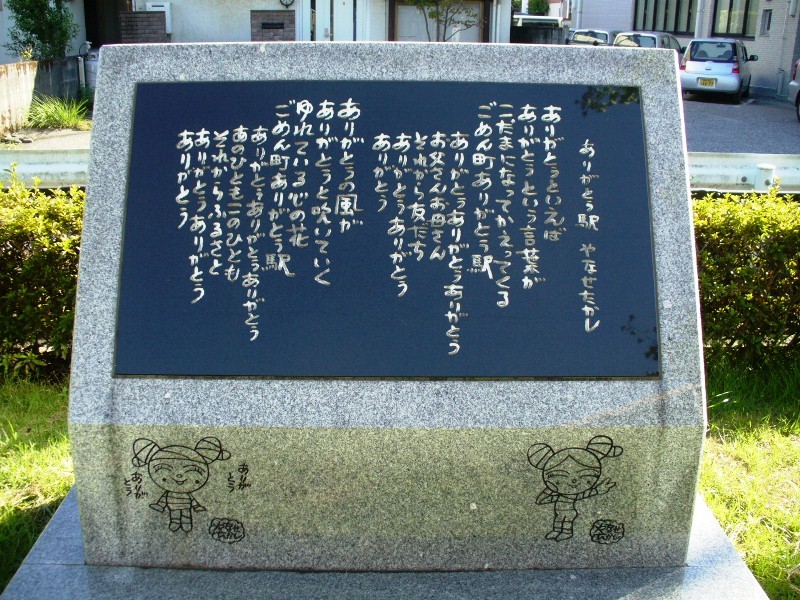 ありがとう駅 やなせたかし
ありがとうといえば
ありがとうという言葉が
こだまになってかえってくる
ごめん町ありがとう駅
ありがとうありがとうありがとう
お父さんお母さん
それから友だち
ありがとうありがとう
ありがとう
ありがとうの風が
ありがとうと吹いていく
ゆれている心の花
ごめん町ありがとう駅
ありがとうありがとうありがとう
あのひともこのひとも
それからふるさと
ありがとうありがとう
ありがとう
ありがとう
ありがとう